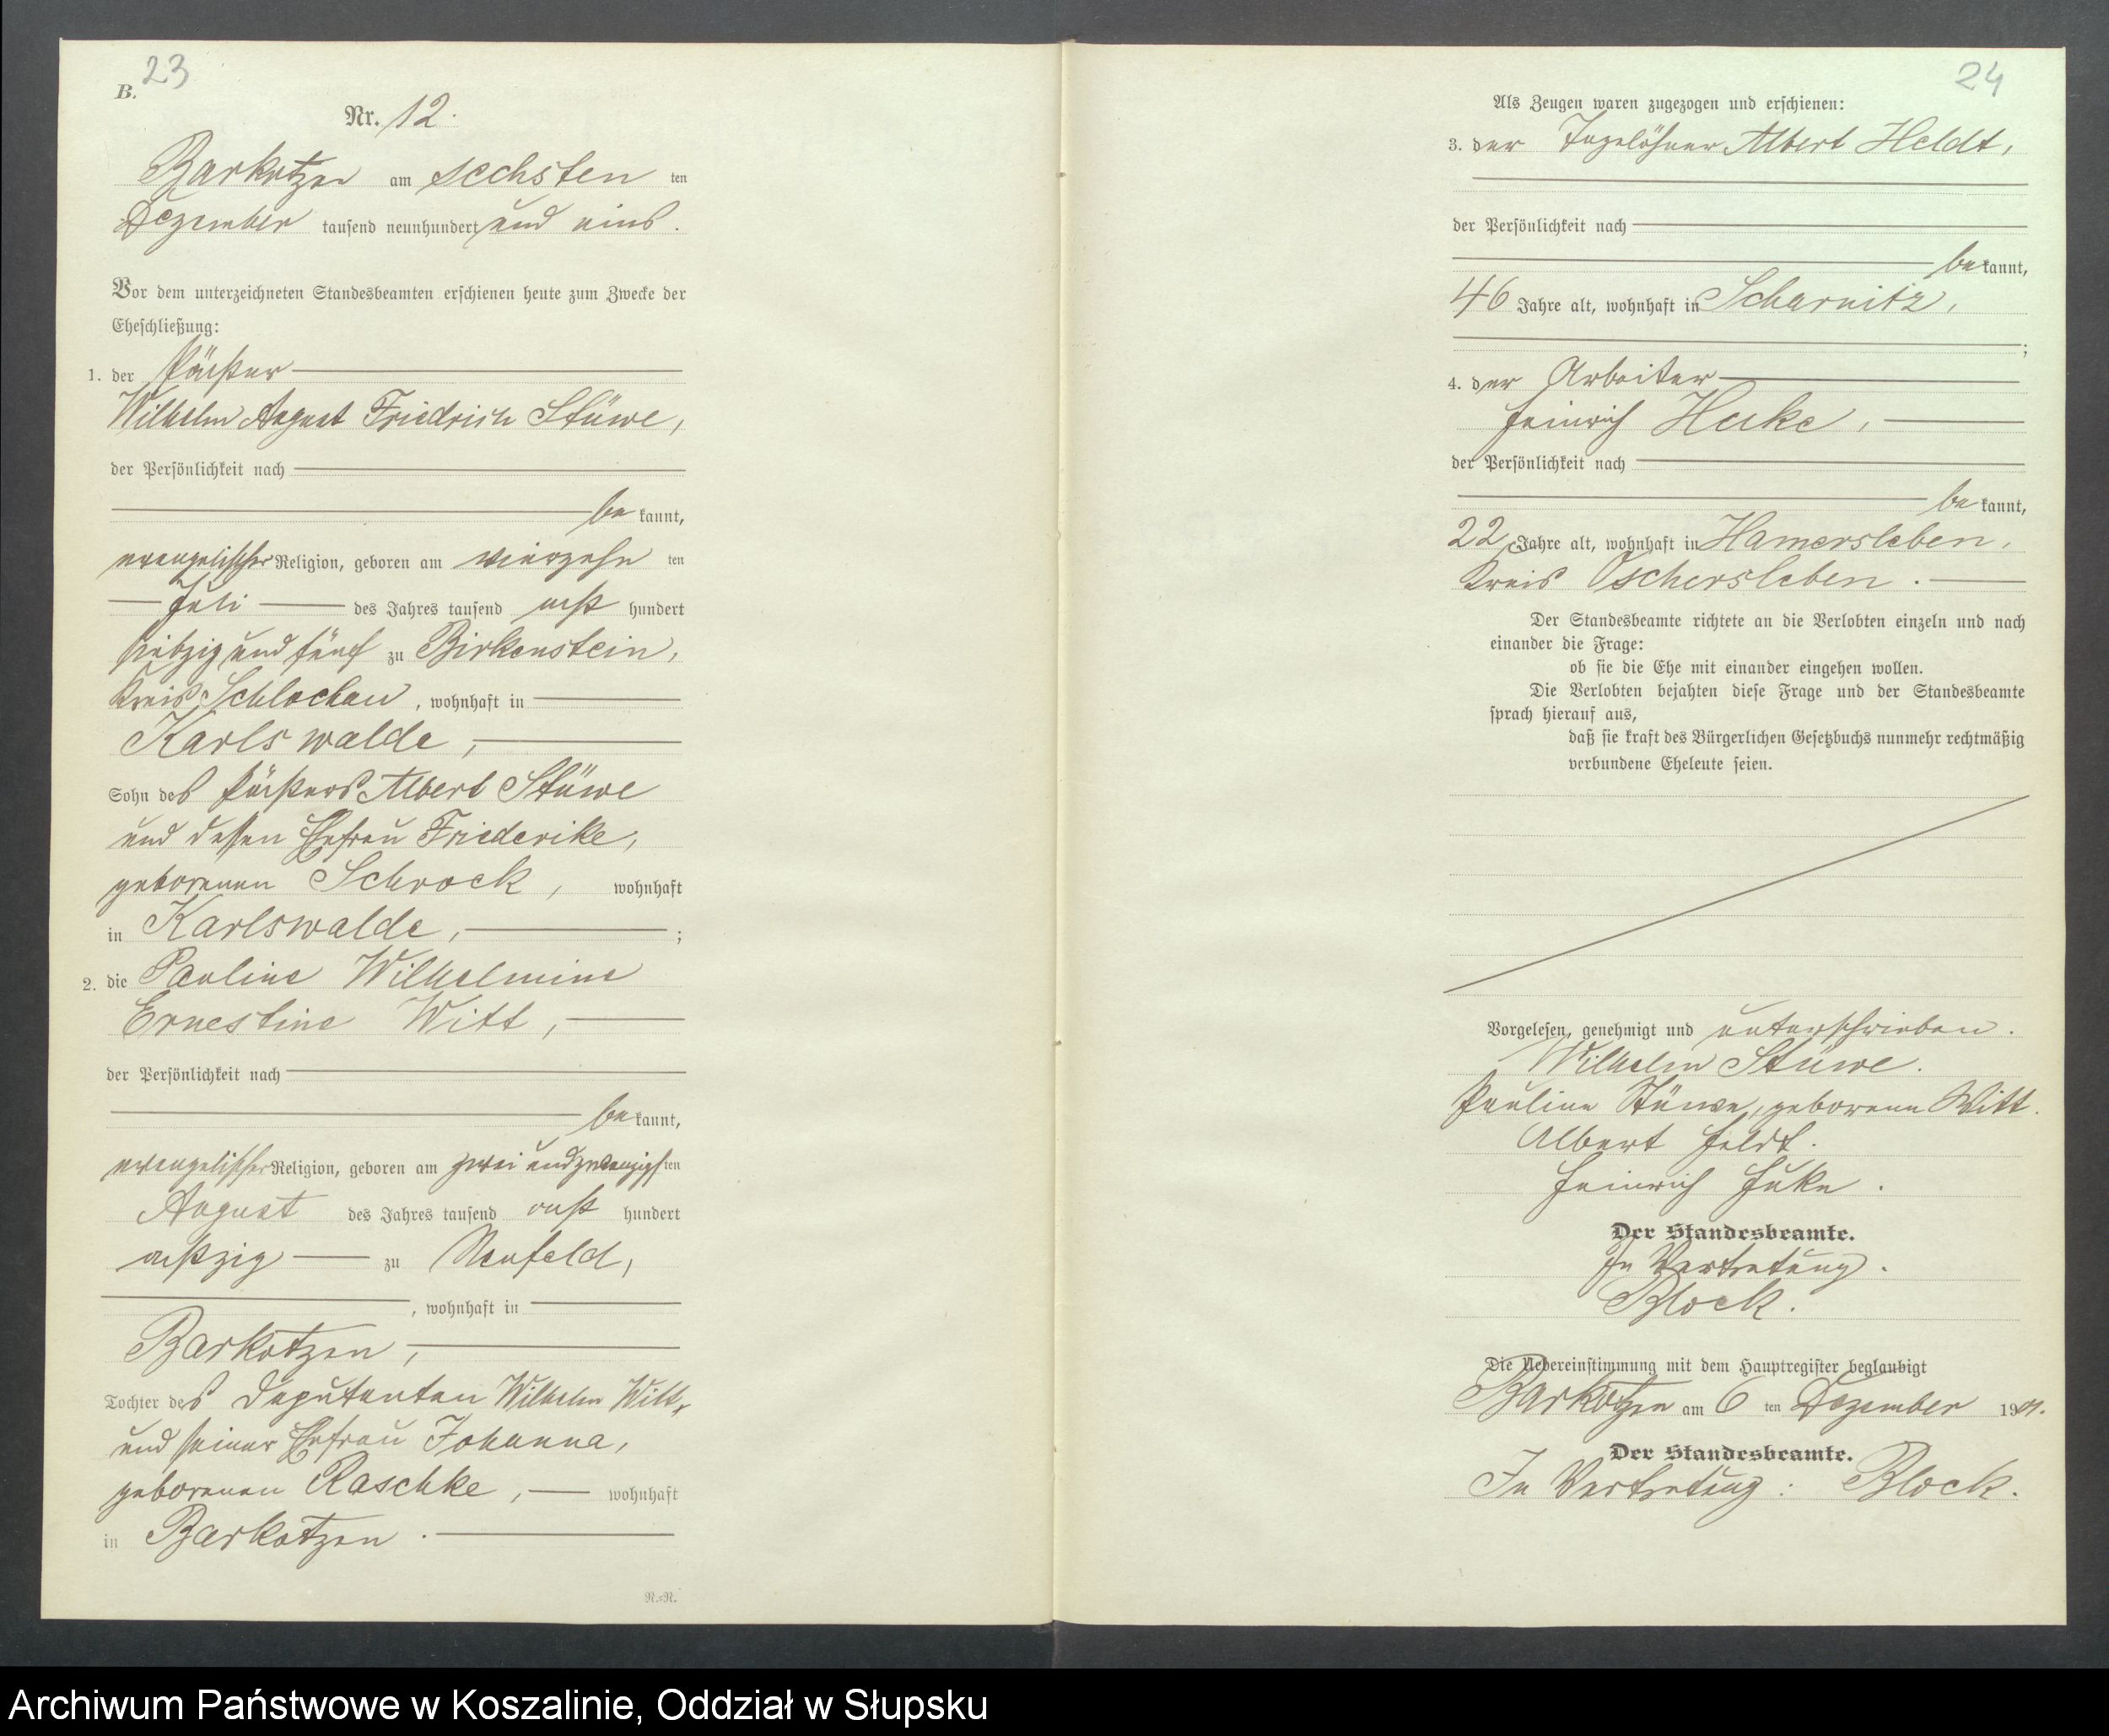 23
B.
Nr. 12.
Barkotzen am sechsten ten
Dezember tausend neunhundert und eins.
Vor dem unterzeichneten Standesbeamten erschienen heute zum Zwecke der
Eheschließung:
1. der Pächter
Wilhelm August Friedrich Stüwe,
der Persönlichkeit nach
bekannt,
evangelischer Religion, geboren am vierzehn ten
Juli des Jahres tausend acht hundert
siebzig und fünf zu Birkenstein,
Kreis Schlochau, wohnhaft in
Karlswalde,
Sohn des Pächters Albert Stüwe
und dessen Ehefrau Friederike,
geborenen Schrock, wohnhaft
in Karlswalde, ;
2. die Pauline Wilhelmine
Ernestine Witt,
der Persönlichkeit nach
bekannt,
evangelischer Religion, geboren am zwei und zwanzigsten
August des Jahres tausend acht hundert
achtzig zu Neufeld,
, wohnhaft in
Barkotzen,
Tochter des Deputanten Wilhelm Witt,
und seiner Ehefrau Johanna,
geborenen Raschke, wohnhaft
in Barkotzen.
N.=N.
24
Als Zeugen waren zugezogen und erschienen:
3. der Tagelöhner Albert Heldt,
der Persönlichkeit nach
bekannt,
46 Jahre alt, wohnhaft in Scharnitz,
;
4. der Arbeiter
Heinrich Huke,
der Persönlichkeit nach
bekannt,
22 Jahre alt, wohnhaft in Hamersleben,
Kreis Oschersleben.
Der Standesbeamte richtete an die Verlobten einzeln und nach
einander die Frage:
ob sie die Ehe mit einander eingehen wollen.
Die Verlobten bejahten diese Frage und der Standesbeamte
sprach hierauf aus,
daß sie kraft des Bürgerlichen Gesetzbuchs nunmehr rechtmäßig
verbundene Eheleute seien.
Vorgelesen, genehmigt und unterschrieben.
Wilhelm Stüwe.
Pauline Stüwe, geborene Witt.
Albert Heldt.
Heinrich Huke.
Der Standesbeamte.
In Vertretung.
Block.
Die Uebereinstimmung mit dem Hauptregister beglaubigt
Barkotzen am 6 ten Dezember 1901.
Der Standesbeamte.
In Vertretung: Block.
Archiwum Państwowe w Koszalinie, Oddział w Słupsku